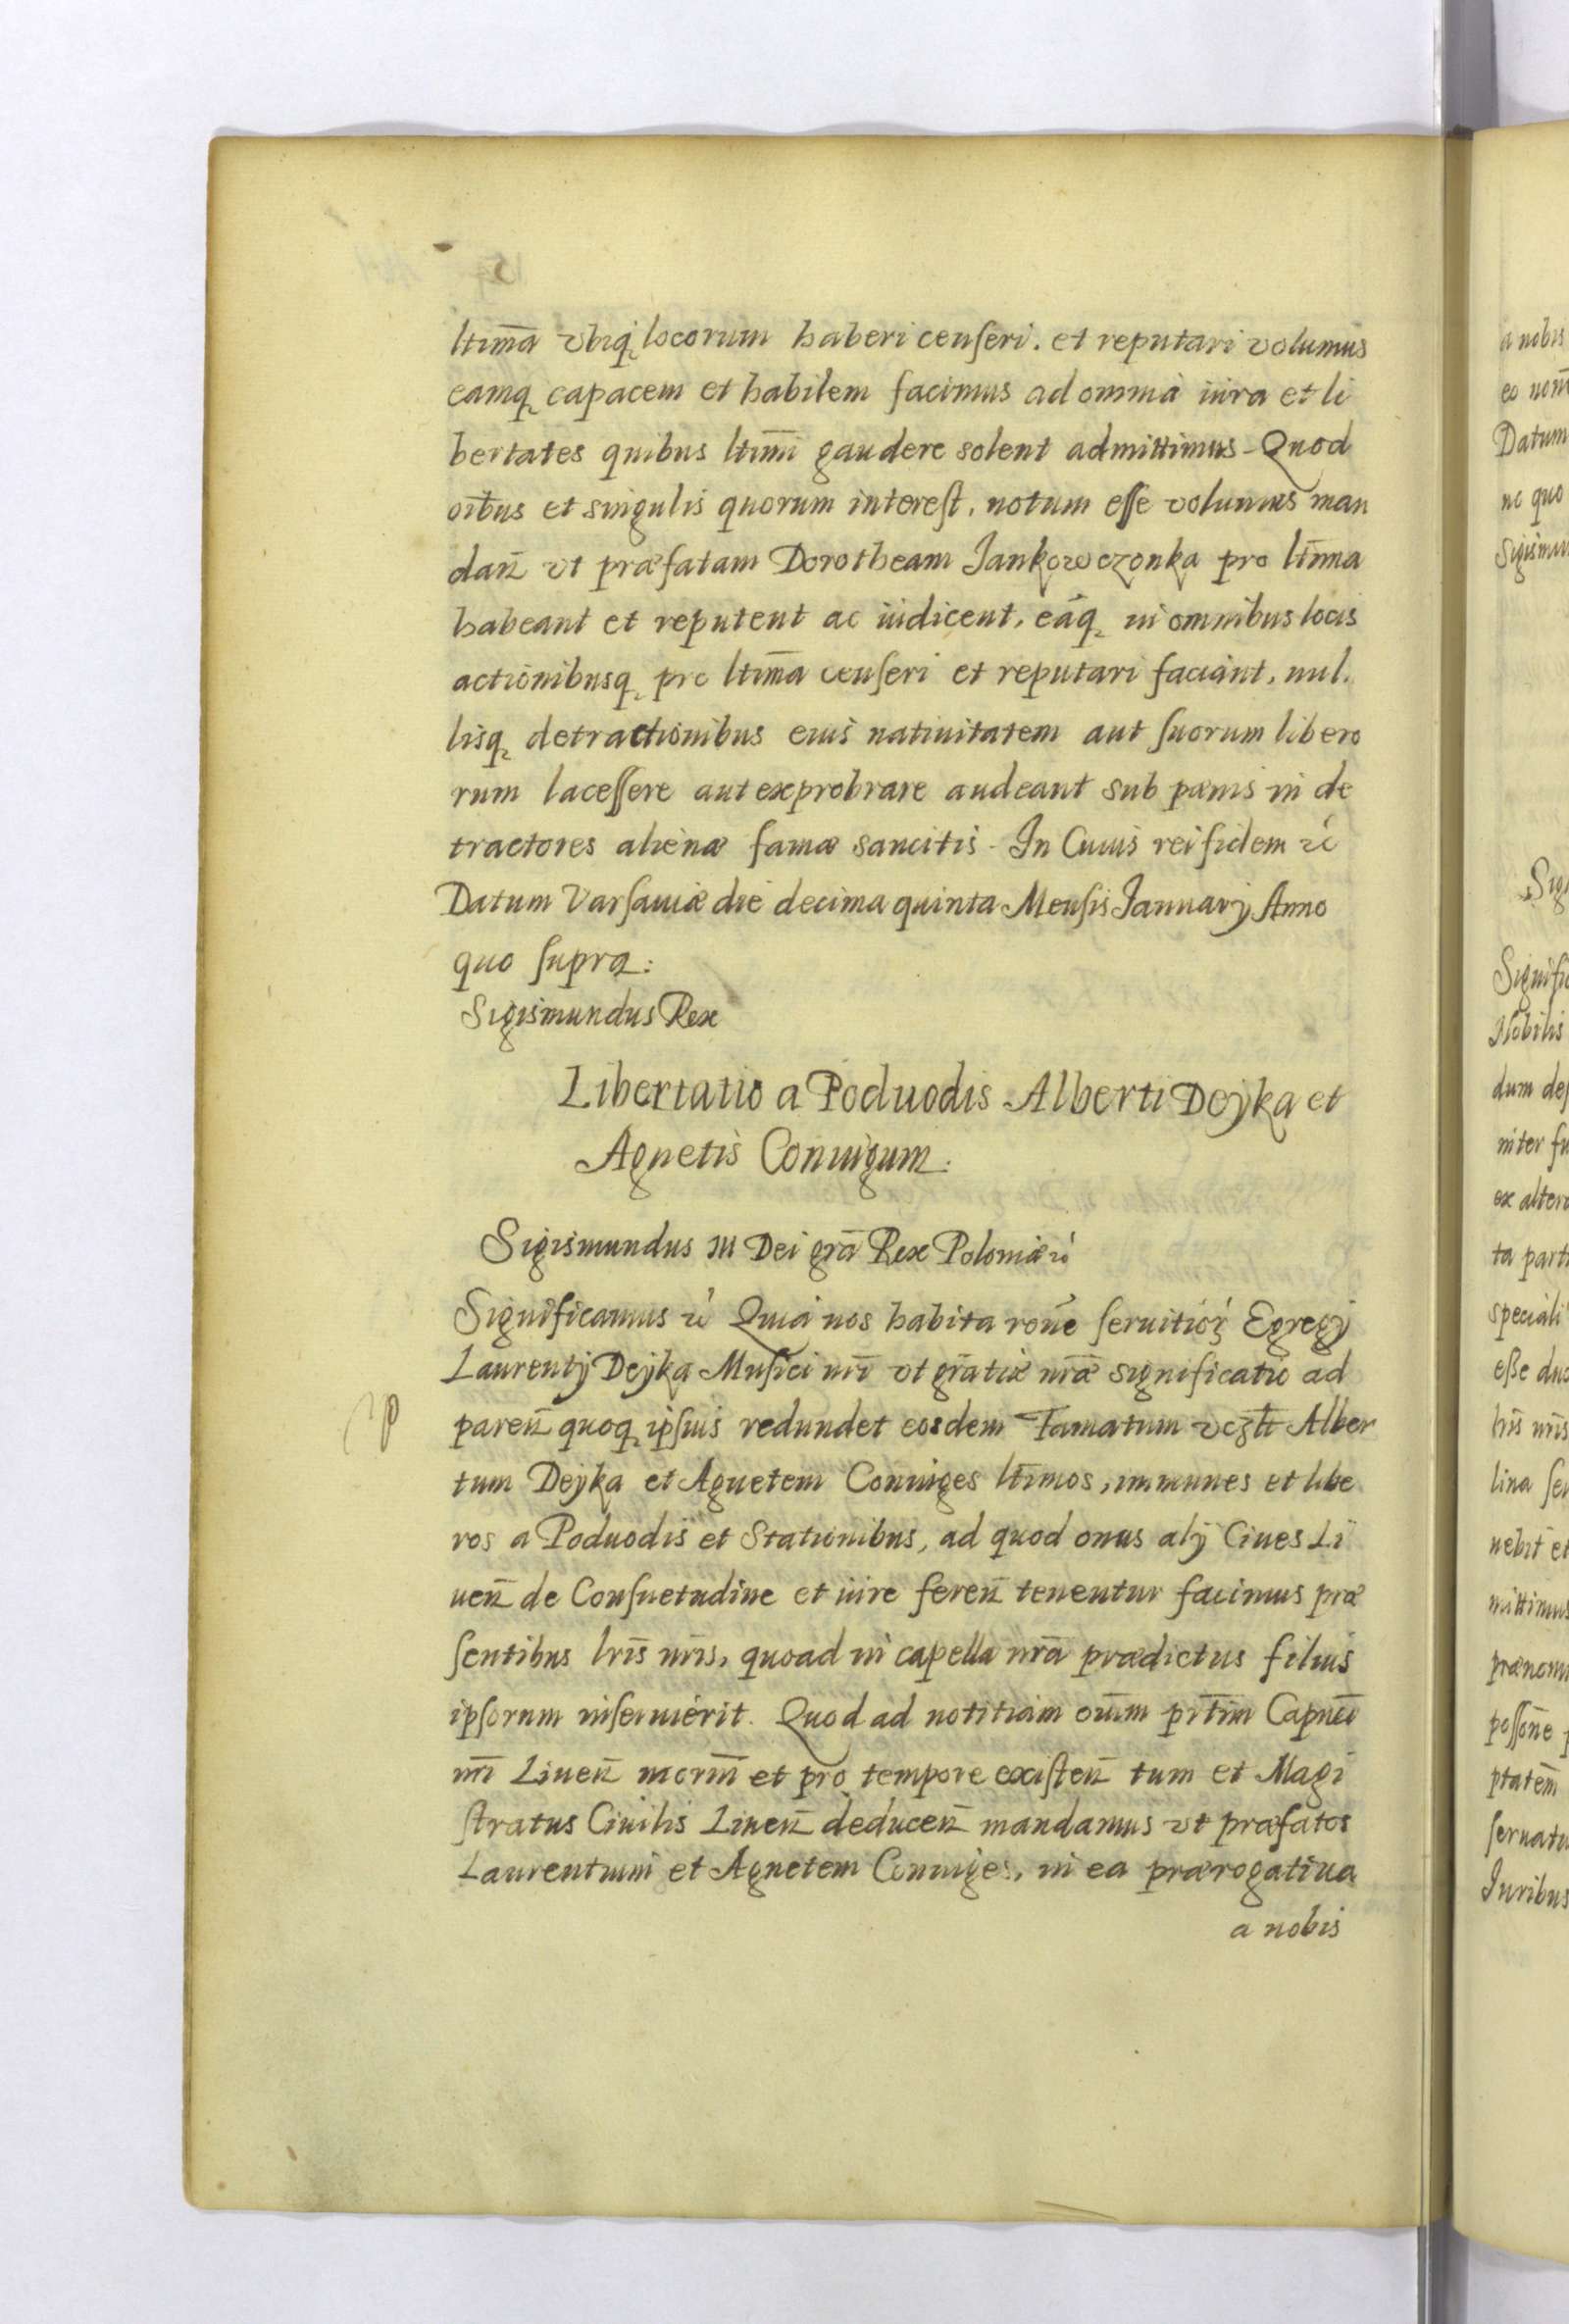 ltim̄a vbiq; locorum haberi censeri. et reputari volumus
eamq; capacem et habilem facimus ad omnia iura et li
bertates quibus ltim̄i gaudere solent admittimus. Quod
oībus et singulis quorum interest, notum esse volumus man
dan̄ vt præfatam Dorotheam Jankowczonka pro ltīma
habeant et reputent ac iudicent, eāq; in omnibus locis
actionibusq; pro ltim̄a censeri et reputari faciant, nul.
lisq; detractionibus eius natiuitatem aut suorum libero
rum lacessere aut exprobrare audeant sub pænis in de
tractores alienæ famæ sancitis. In Cuius rei fidem &c
Datum Varsauiæ die decima quinta Mensis Januarij Anno
quo supra:
Sigismundus Rex
Libertatio a Poduodis Alberti Deyka et
Agnetis Coniugum:
Sigismundus III Dei grā Rex Poloniæ &c
Significamus &c Quia nos habita rōne seruitior; Egregij
Laurentij Deyka Musici nrī vt grātiæ nrǣ significatio ad
paren̄ quoq; ipsius redundet eosdem Famatum vczt̄t Alber
tum Deyka et Agnetem Coniuges ltīmos, immunes et libe
ros a Poduodis et Stationibus, ad quod onus alij Ciues Li
uen̄ de Consuetudine et iure feren̄ tenentur facimus præ
sentibus lrīs nrīs, quoad in capella nrā prædictus filius
ipsorum inseruierit. Quod ad notitiam oīum prt̄im Capnei
nrī Liuen̄ mōrni et pro tempore existen̄ tum et Magi
stratus Ciuilis Liuen̄ deducen̄ mandamus vt præfatos
Laurentium et Agnetem Coniuges, in ea prærogatiua
a nobis
a nobis
Datum
ne quo
Nobilis
inter
ex altera
esse
lina
Juribus